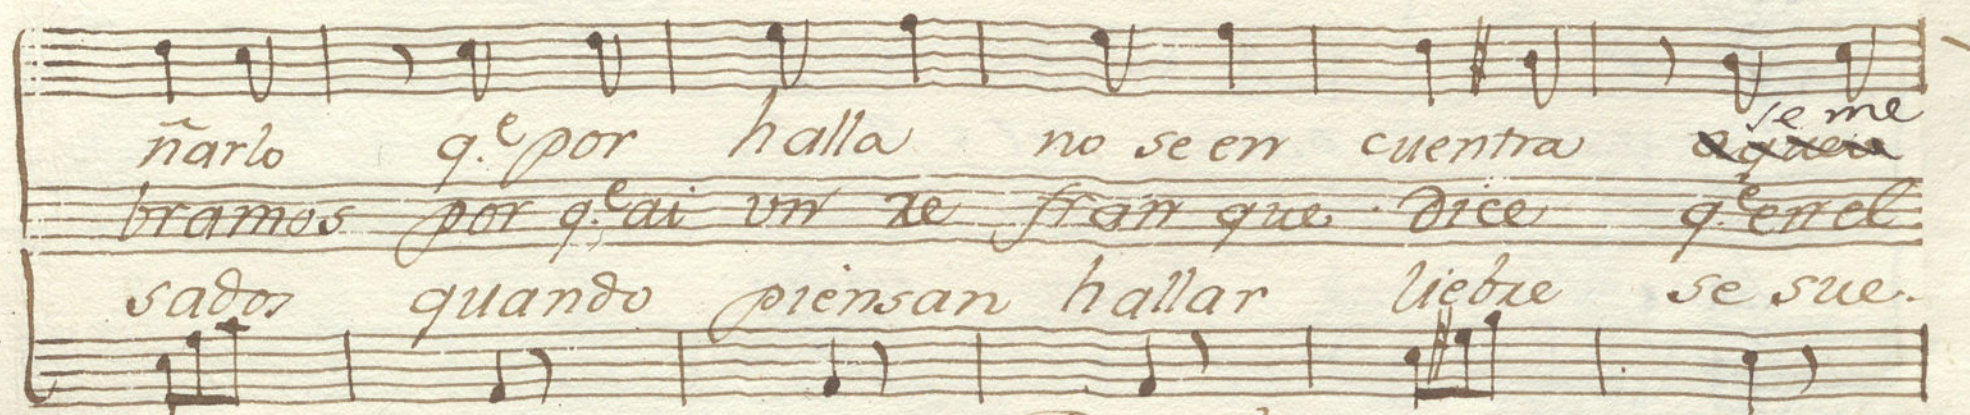 se me
ñarlo q.e por halla no se en cuentra
bramos por q.e ai vn re fran que dice q.e en el
sados quando piensan hallar liebre se sue-